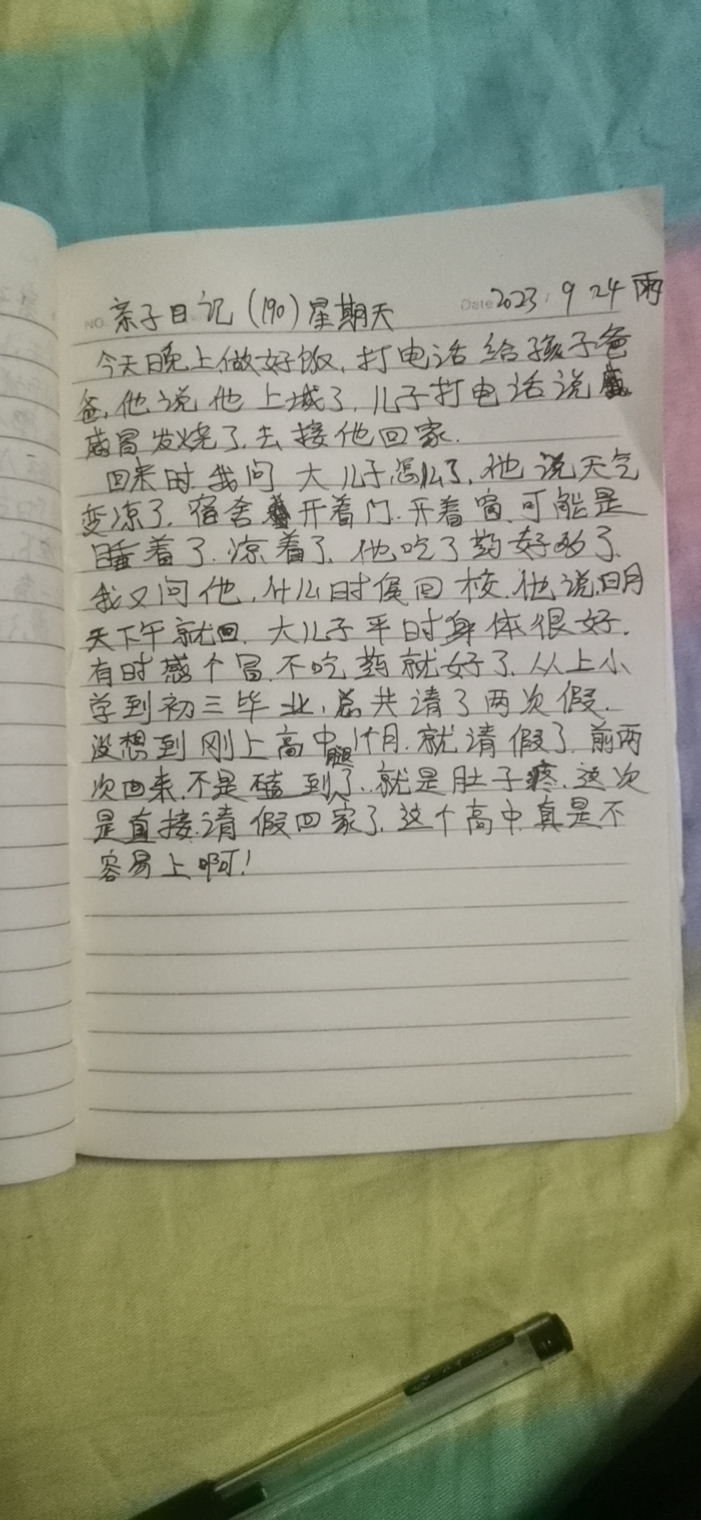 亲子日记(190)星期天 Date 2023.9 24 雨
今天晚上做好饭,打电话给孩子爸
爸,他说他上城了,儿子打电话说
感冒发烧了,去接他回家.
回来时,我问大儿子怎么了,他说天气
变凉了,宿舍开着门.开着窗,可能是
睡着了,凉着了,他吃了药好多了.
我又问他,什么时侯回校,他说,明
天下午就回.大儿子平时身体很好.
有时感个冒,不吃药就好了,从上小
学到初三毕业,总共请了两次假.
没想到刚上高中1个月.就请假了,前两
次回来,不是磕到腿了,就是肚子疼.这次
是直接请假回家了,这个高中,真是不
容易上啊!